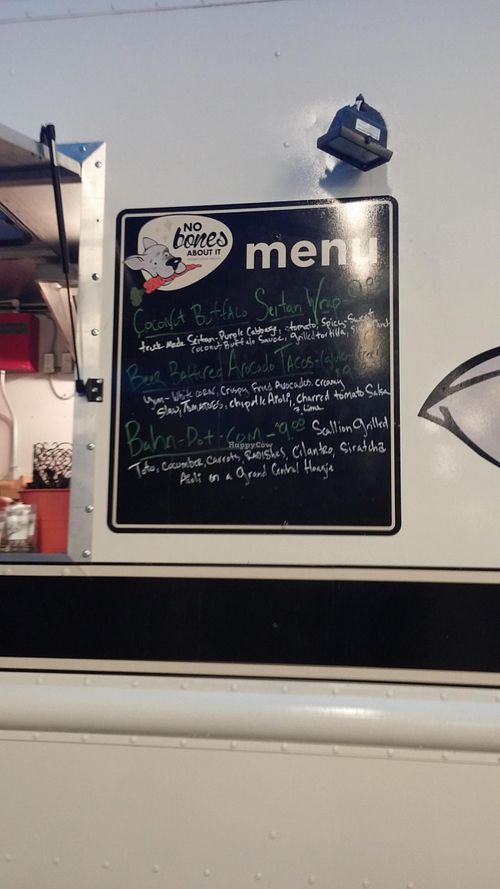 NO
bones
ABOUT IT
menu
Coconut Buffalo Seitan Wrap
truck-made Seitan, Purple Cabbage, tomato, Spicy Sweet
coconut Buffalo Sauce, grilled tortilla,
Beer Battered Avocado Tacos
White corn, Crispy Fried Avocados, creamy
Slaw, Tomatoes, chipotle Aioli, charred tomato Salsa
& Lime
Bahn-Dot-Com - 9.00 Scallion grilled
Tofu, Cucumber, Carrots, Radishes, Cilantro, Siratcha
Aioli on a Grand Central Hoagie
HappyCow